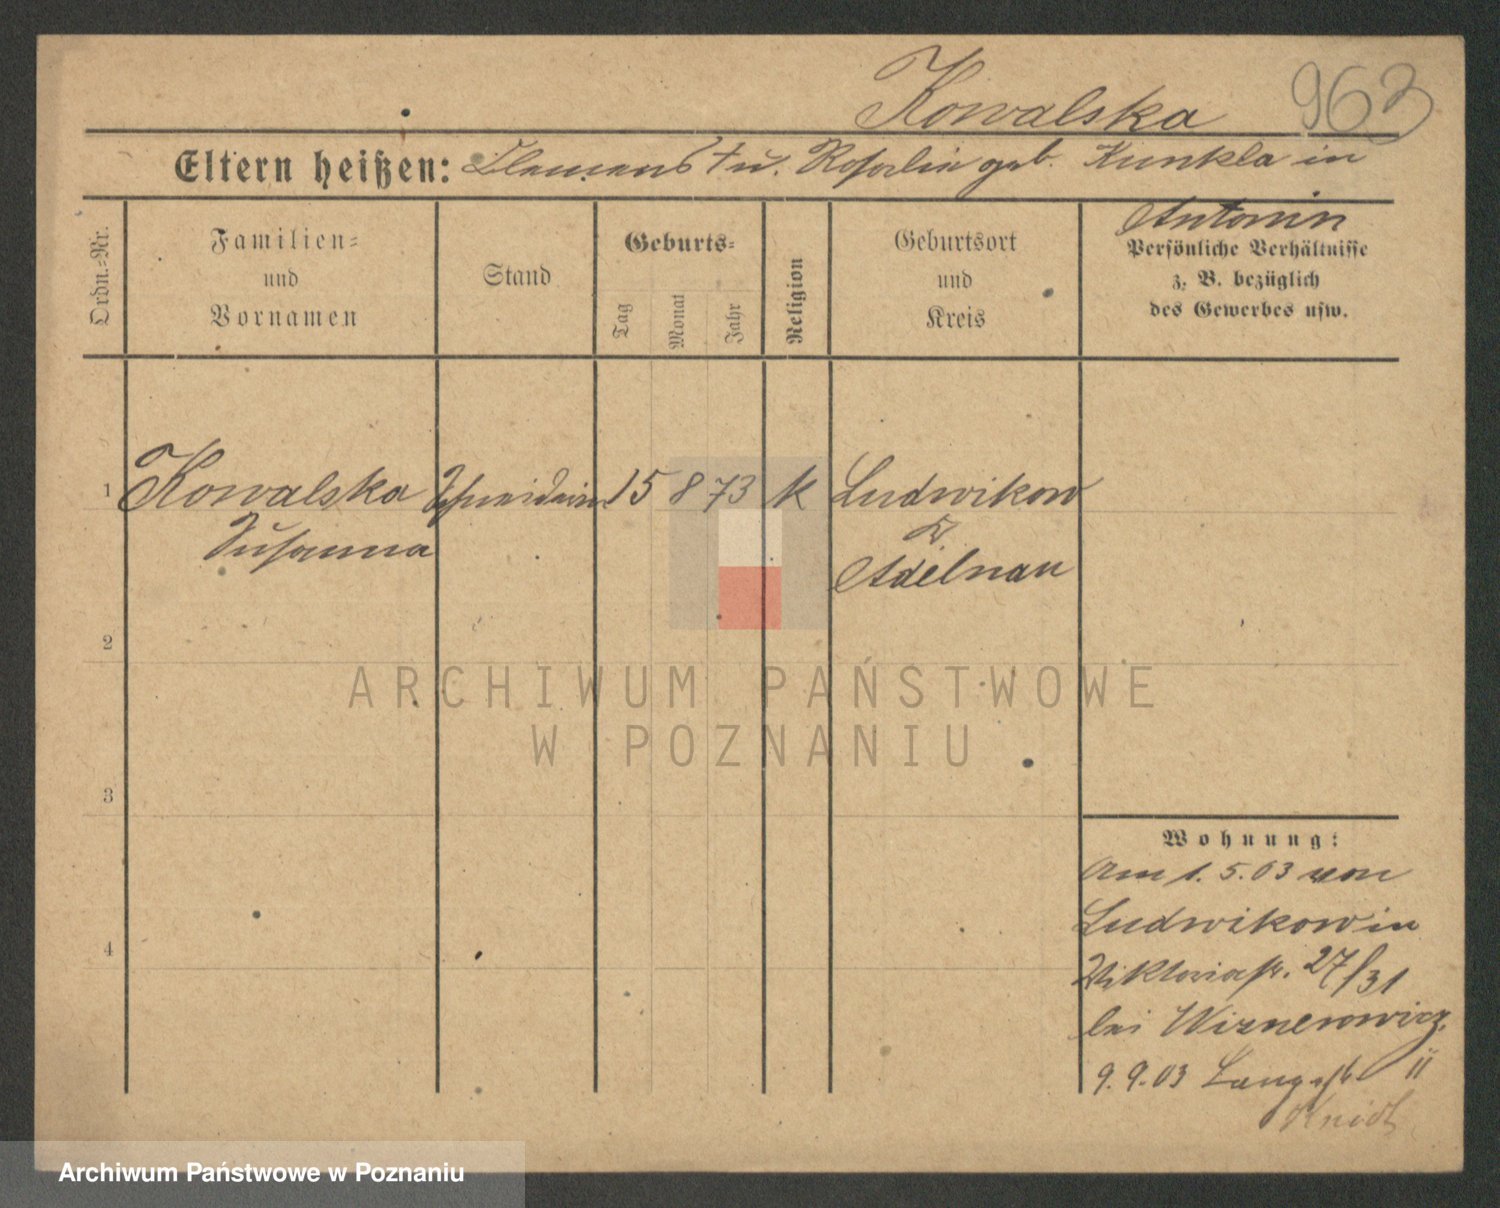 Kowalska 963
Eltern heißen: Clemens † u. Rosalie geb. Kunkla in
Antonin
Ordn.-Nr.
Familien-
und
Vornamen
Stand
Geburts-
Tag
Monat
Jahr
Religion
Geburtsort
und
Kreis
Persönliche Verhältnisse
z. B. bezüglich
des Gewerbes usw.
1 Kowalska Schneiderin 15 8 73 k Ludwikow
Susanna
Kr.
Adelnau
2
3
4
Wohnung:
Am 1. 5. 03 von
Ludwikow in
Viktoriastr. 27/31
bei Wiznerowicz
9. 9. 03 Langestr. 11
ARCHIWUM PAŃSTWOWE
W POZNANIU
Archiwum Państwowe w Poznaniu